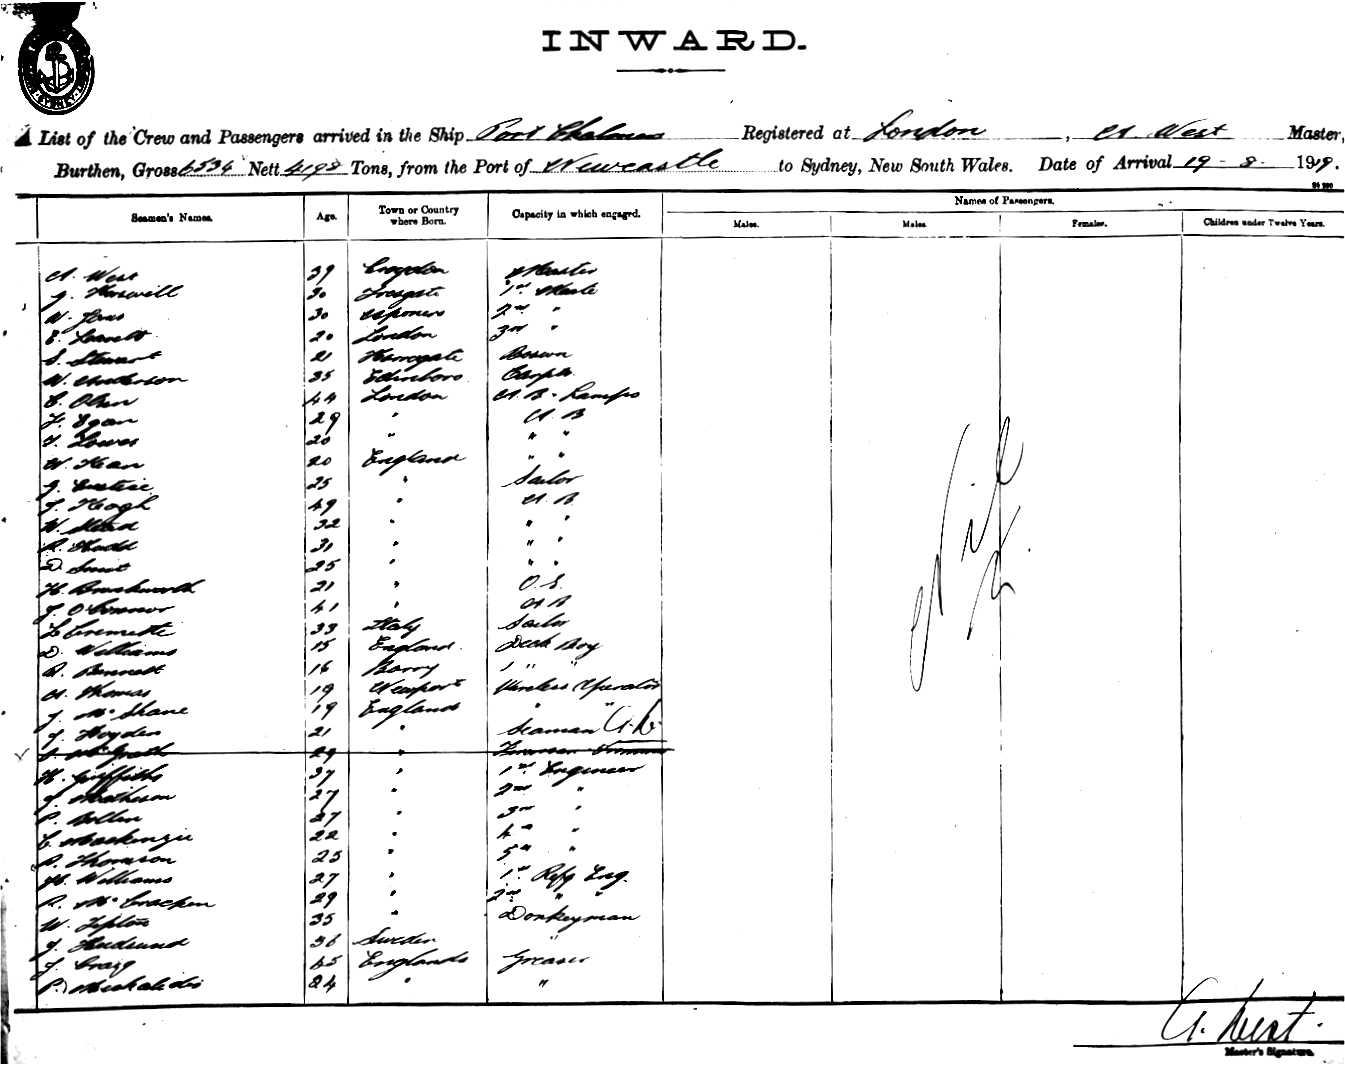 INWARD.
A List of the Crew and Passengers arrived in the Ship Port Chalmers Registered at London, A West Master,
Burthen, Gross 6534 Nett 4198 Tons, from the Port of Newcastle to Sydney, New South Wales. Date of Arrival 19-8-1919.
Names of Passengers.
Seamen's Names. Age. Town or Country where Born. Capacity in which engaged. Males. Males. Females. Children under Twelve Years.
A. West 39 Croydon Master
J. 30 1st Mate
W. 30 2nd "
E. 20 London 3rd "
S. Stewart 21 Harrogate Bosun
W. Anderson 35 Edinboro Carptr
C. Olsen 44 London A.B. Lamps
J. Egan 29 " A.B
20 " " "
W. Kean 20 England " "
J. 25 " Sailor
J. Keogh 49 " A.B
W. 32 " " "
R. 31 " " "
D. 25 " " "
H. 21 " O.S.
J. O'Connor 41 " A.B
33 Italy Sailor
D. Williams 15 England Deck Boy
R. Bennett 16 Barry " "
A. Thomas 19 Newport Wireless Operator
J. McShane 19 England " "
J. Hoyden 21 " Seaman A.B.
McGrath 29 " Fireman Trimmer
H. Griffiths 37 " 1st Engineer
J. Matheson 27 " 2nd "
27 " 3rd "
C. Mackenzie 22 " 4th "
A. Thomson 25 " 5th "
H. Williams 27 " 1st Refg Eng.
R. McCracken 29 " 2nd " "
W. 35 " Donkeyman
J. Hedlund 36 Sweden "
J. Cragg 45 England Greaser
P. Michalidis 24 " "
Nil
A. West.
Master's Signature.